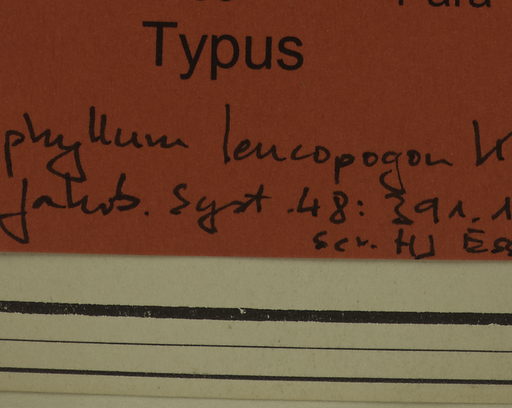 Para
Typus
phyllum leucopogon
Jakob. Syst. 48: 391.
scr. HJ